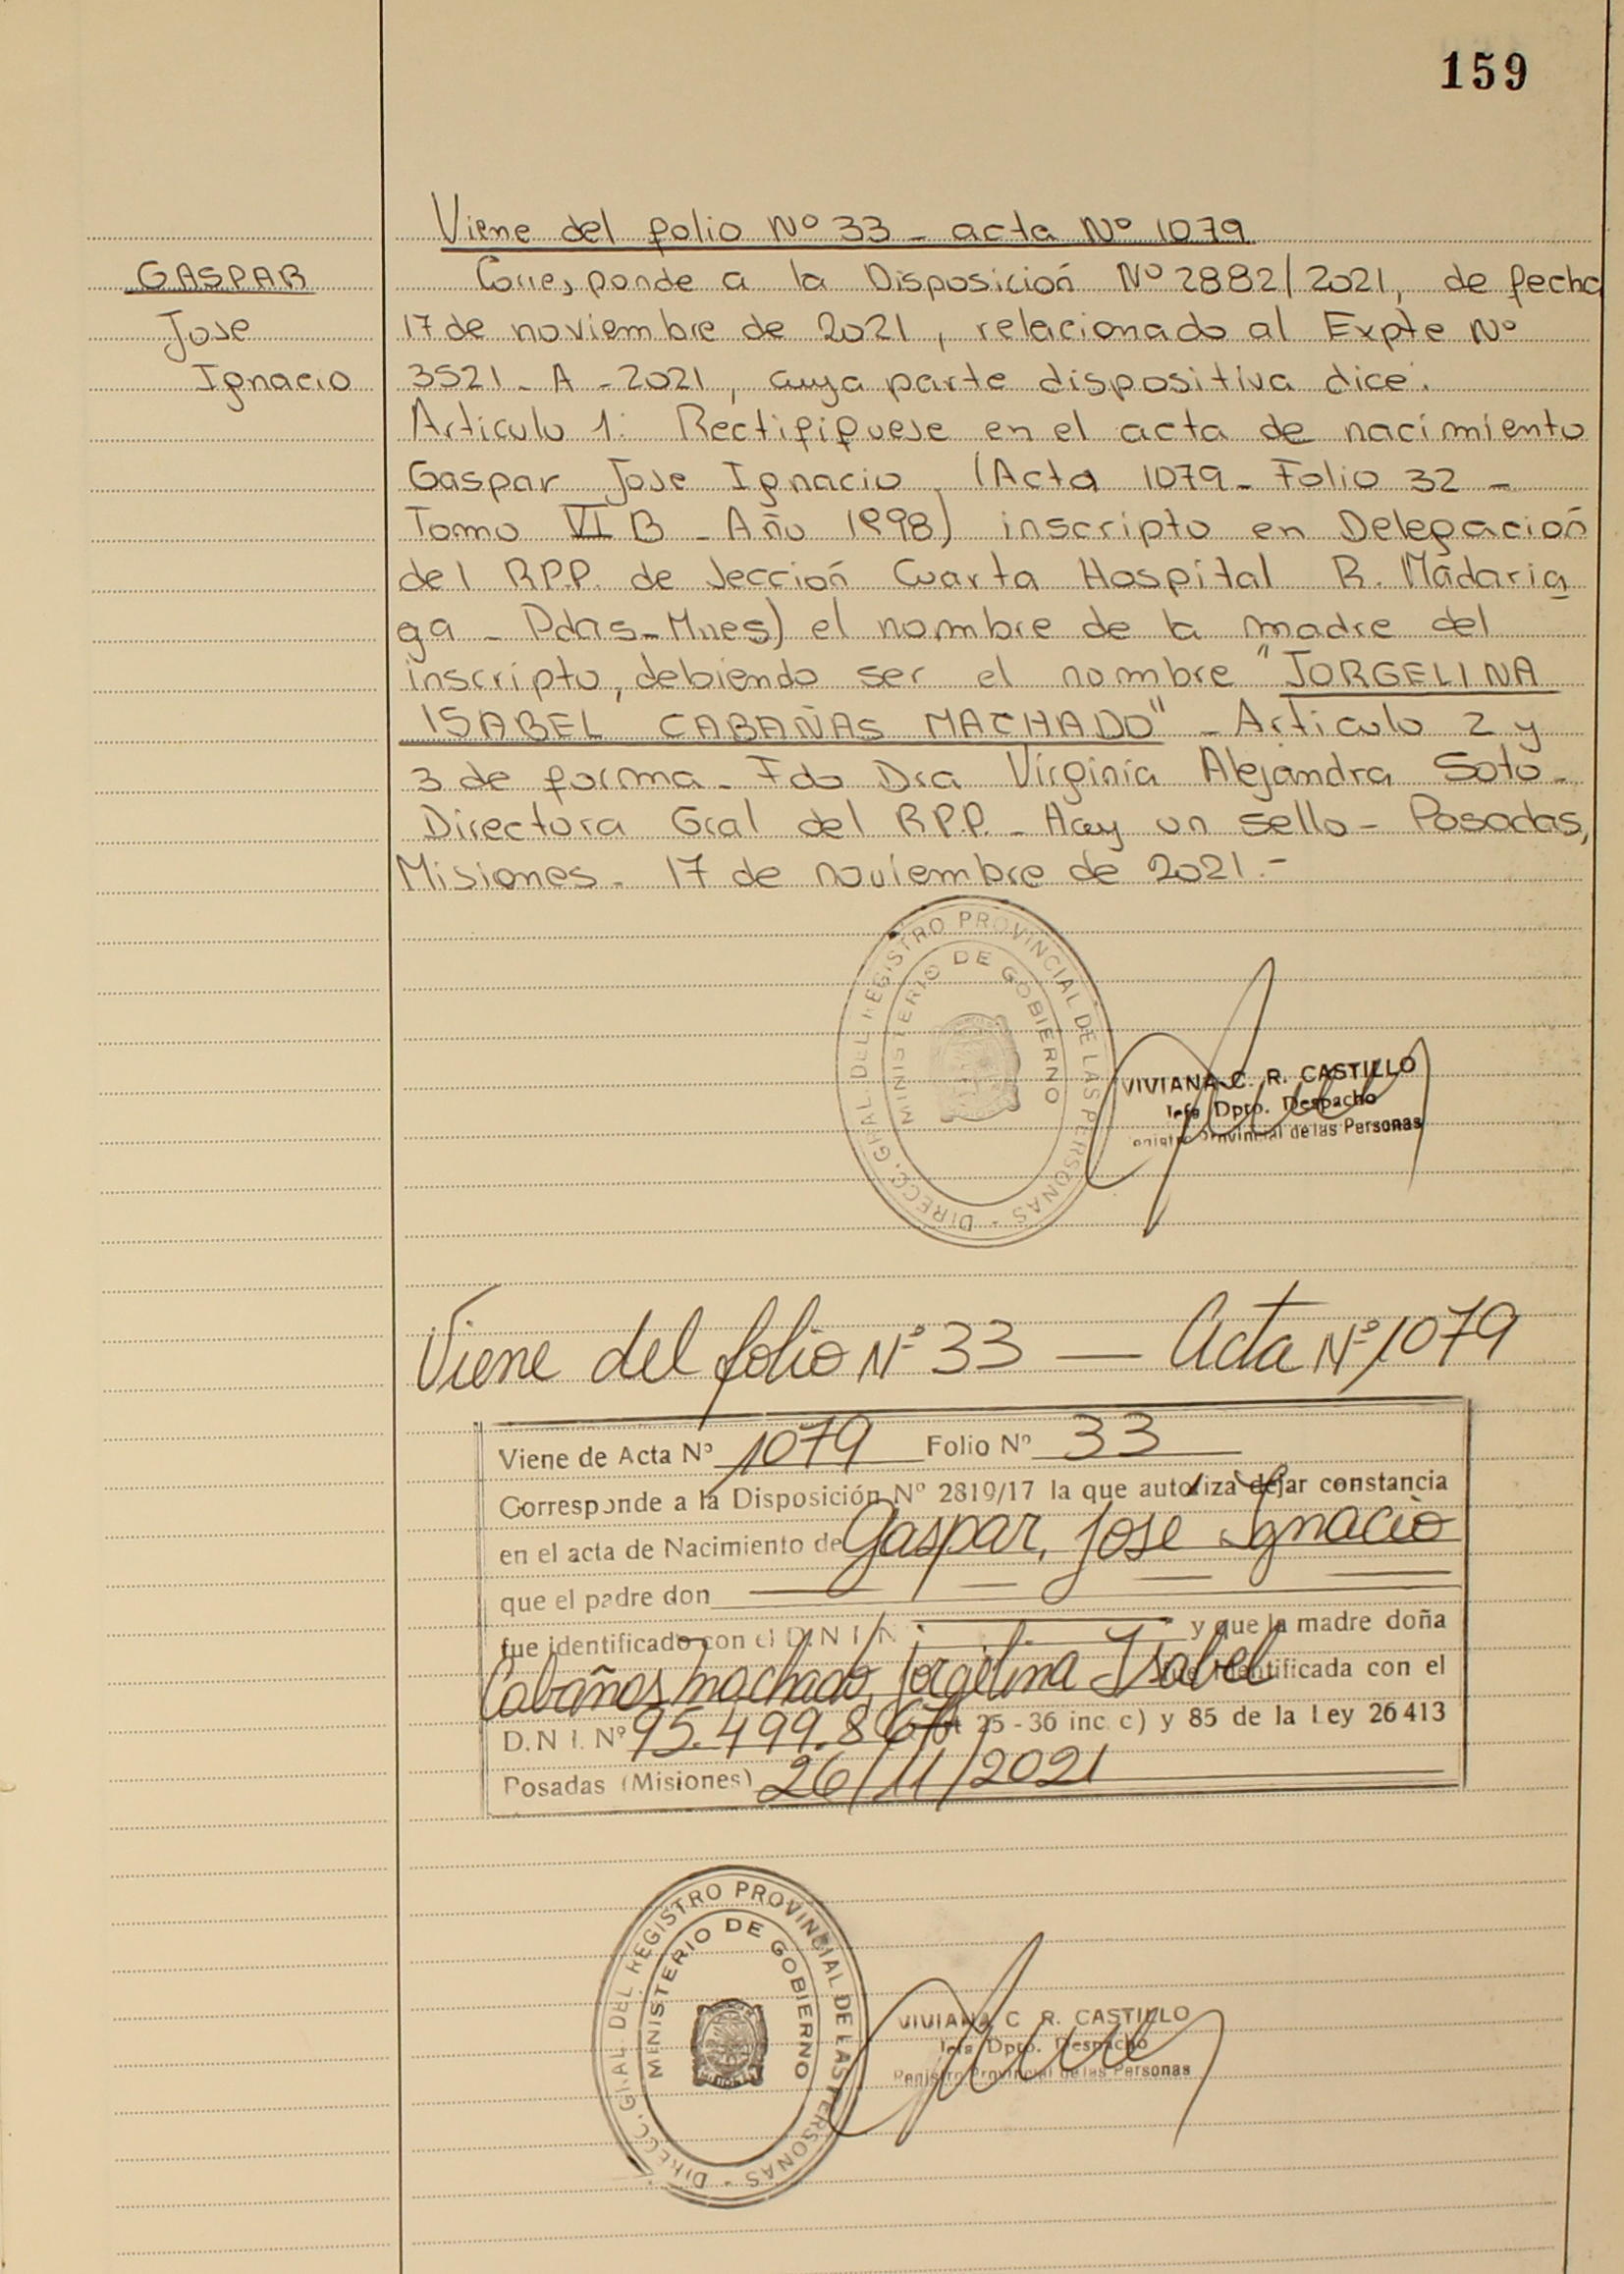 159
Viene del folio Nº 33 - acta Nº 1079
GASPAR
Jose
Ignacio
Corresponde a la Disposición Nº 2882/2021, de fecha
17 de noviembre de 2021, relacionado al Expte Nº
3521 - A - 2021, cuya parte dispositiva dice:
Articulo 1: Rectififuese en el acta de nacimiento
Gaspar Jose Ignacio, (Acta 1079 - Folio 32 -
Tomo VI B - Año 1998) inscripto en Delegación
del R.P.P. de Sección Cuarta Hospital R. Madaria
ga - Pdas - Mnes) el nombre de la madre del
inscripto, debiendo ser el nombre "JORGELINA
ISABEL CABAÑAS MACHADO" - Articulo 2 y
3 de forma - Fdo Dra Virginia Alejandra Soto -
Directora Gral del R.P.P. - Hay un sello - Posadas,
Misiones - 17 de noviembre de 2021.-
DIRECC. GRAL. DEL REGISTRO PROVINCIAL DE LAS PERSONAS -
MINISTERIO DE GOBIERNO
VIVIANA C. R. CASTILLO
Jefa Dpto. Despacho
Registro Provincial de las Personas
Viene del folio Nº 33 — Acta Nº 1079
Viene de Acta Nº 1079 Folio Nº 33
Corresponde a la Disposición Nº 2819/17 la que autoriza dejar constancia
en el acta de Nacimiento de Gaspar, Jose Ignacio
que el padre don — — — — —
fue identificado con el D.N.I. Nº — y que la madre doña
Cabañas Machado, Jorgelina Isabel fue identificada con el
D.N.I. Nº 95.499.867 Art 25 - 36 inc. c) y 85 de la Ley 26413
Posadas (Misiones) 26/11/2021
DIRECC. GRAL. DEL REGISTRO PROVINCIAL DE LAS PERSONAS -
MINISTERIO DE GOBIERNO
VIVIANA C. R. CASTILLO
Jefa Dpto. Despacho
Registro Provincial de las Personas